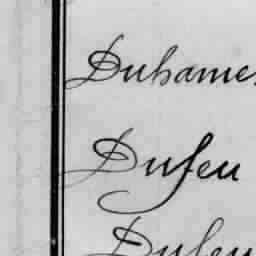 Duhame
Dufeu
Dufeu